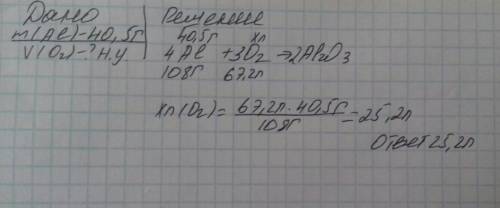 Дано
m(Al)-40,5г
V(O2)-? Н.У.
Решение
40,5г хл
4Al +3O2 →2Al2O3
108г 67,2л
хл(O2)= 67,2л·40,5г/108г =25,2л
Ответ 25,2л